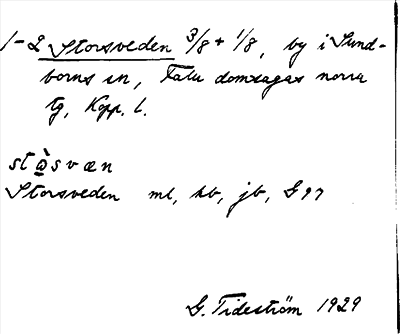 1-2 Storsveden 3/8 + 1/8, by i Sund-
borns sn, Falu domsagas norra
tg, Kopp. l.
stå̀svæn
Storsveden ml, kb, jb, G 97
G. Tideström 1929